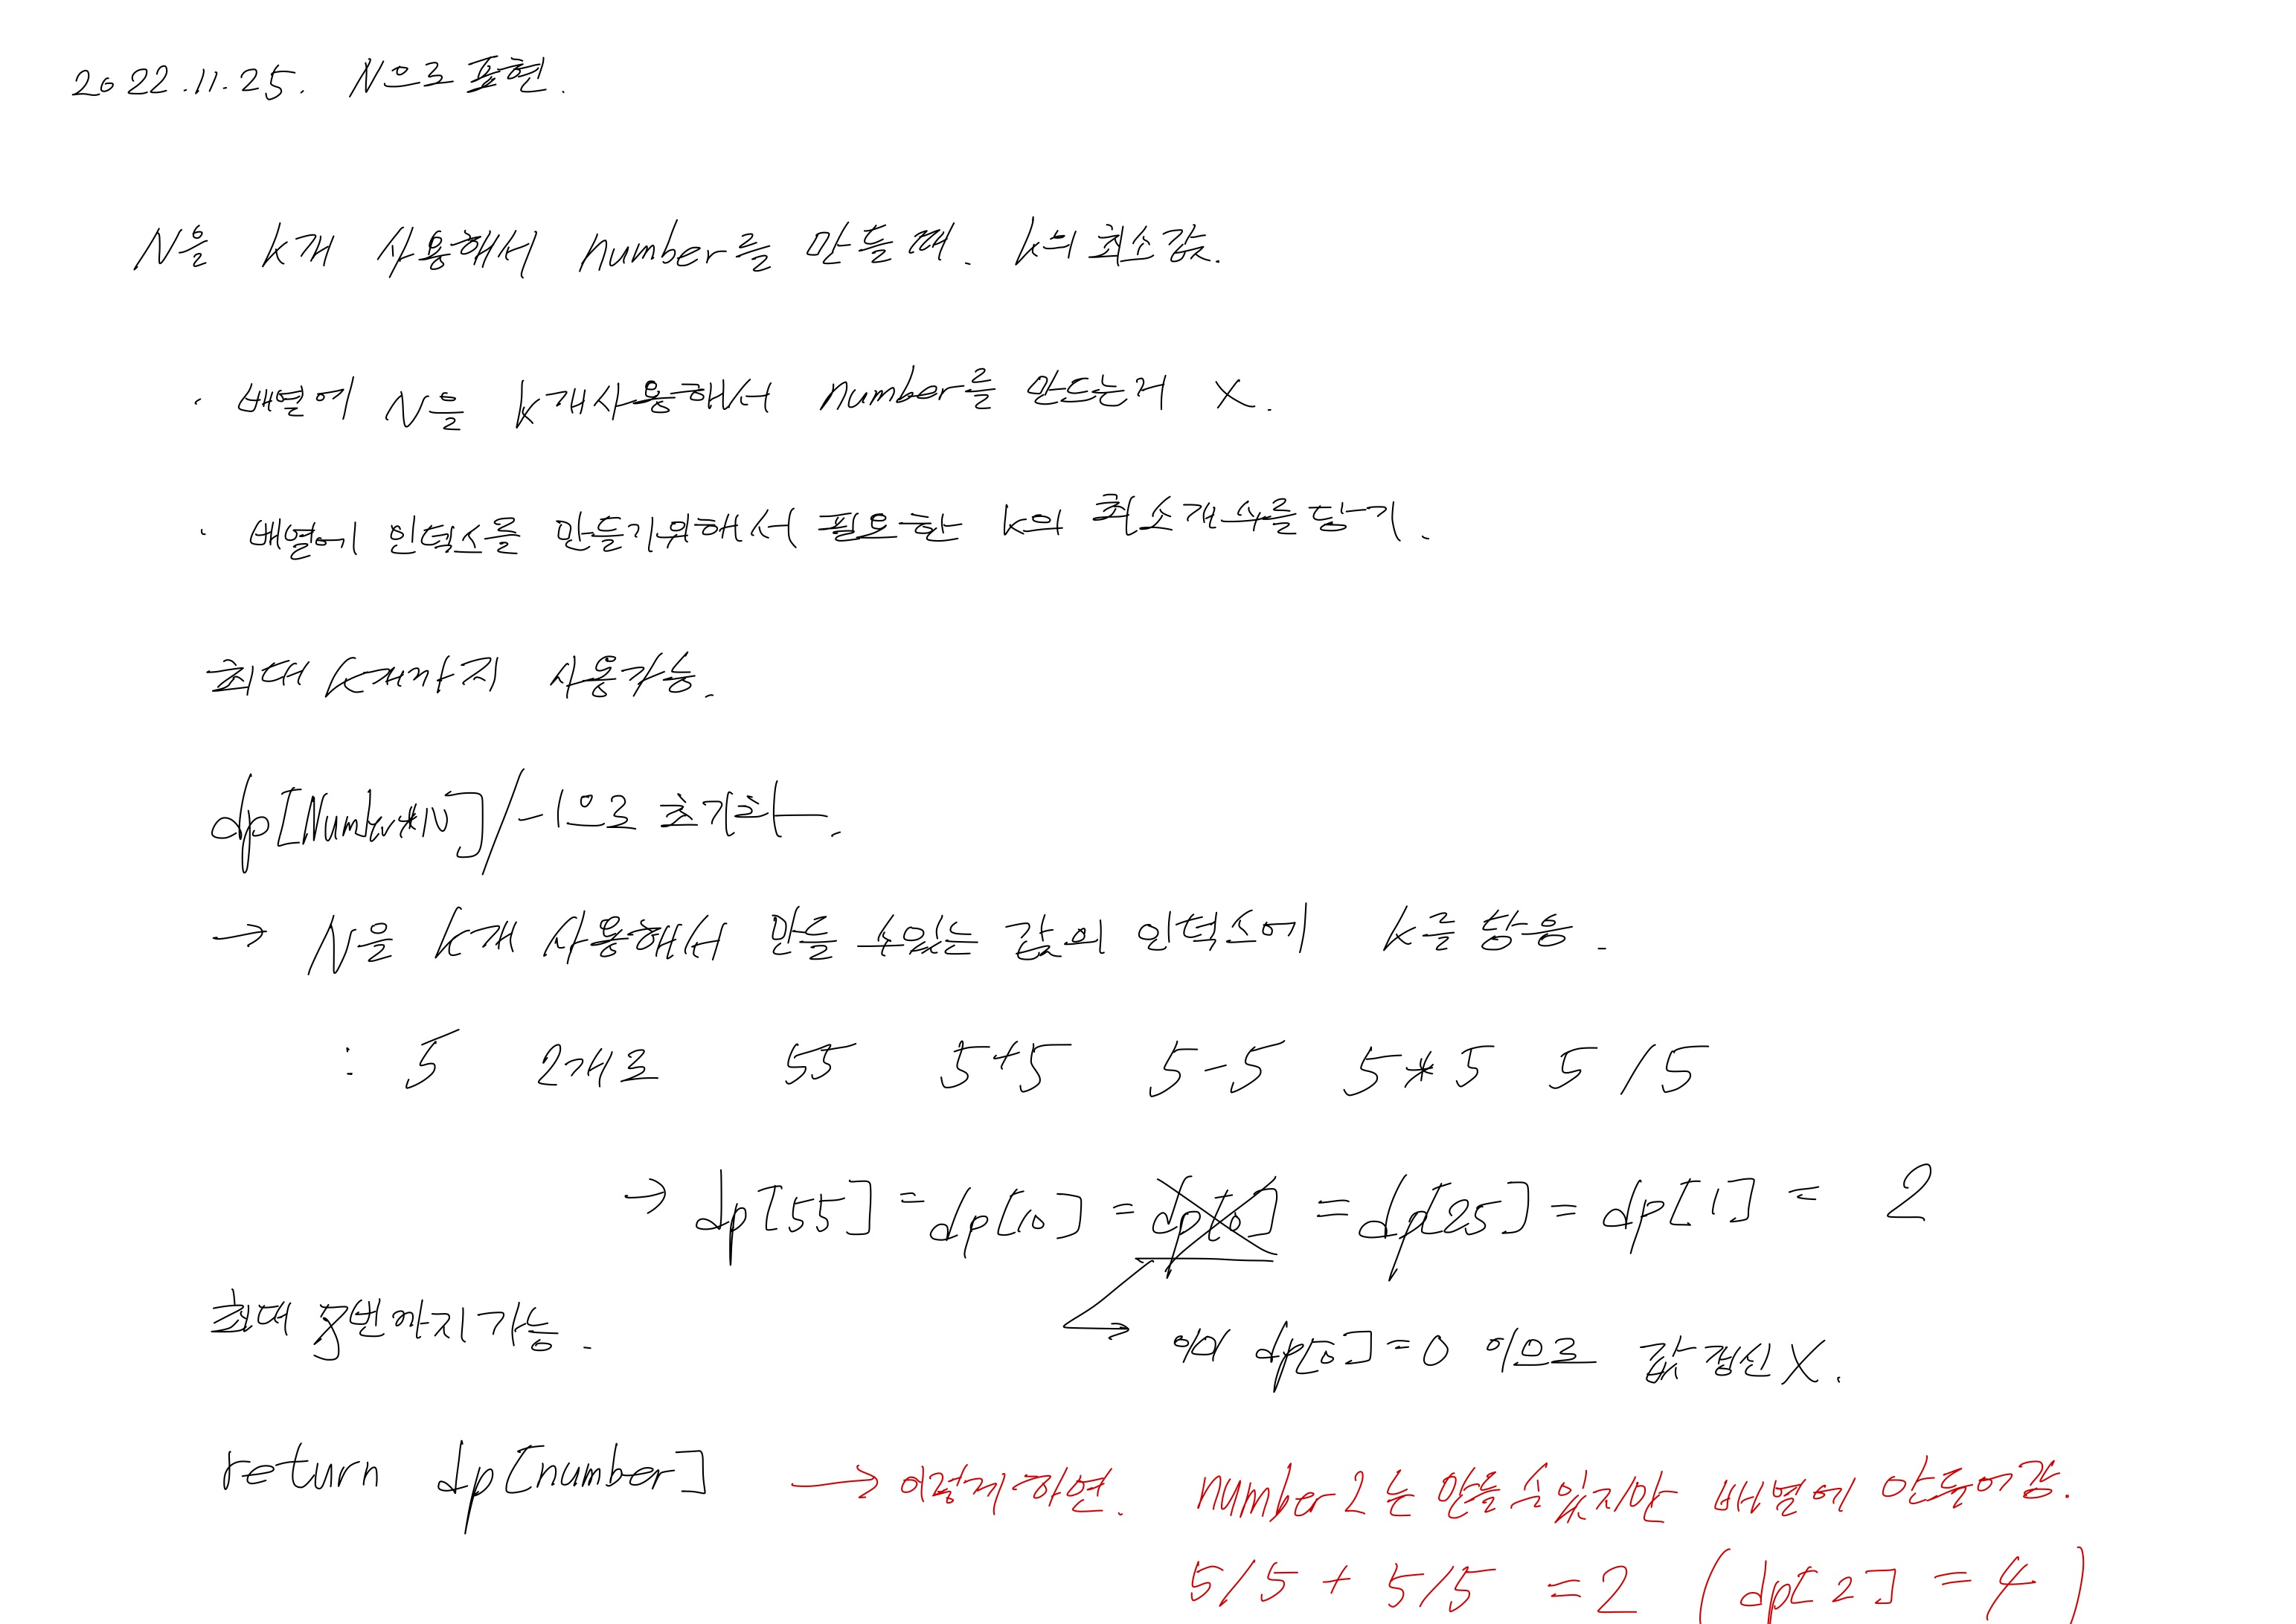 2022.11.25. N으로 표현.
N을 k개 사용해서 number를 만들 때. k의 최소값.
· 배열에 N을 k개 사용해서 number를 만드는거 X.
· 배열에 인덱스를 만들기위해서 필요한 k의 최소개수를 담기.
최대 k개까지 사용가능.
dp[Number*N] / -1으로 초기화.
→ N을 k개 사용해서 만들 수있는 값의 인덱스에 k를 담음.
: 5 2개로 55 5+5 5-5 5*5 5/5
→ dp[55] = dp[10] = dp[0] = dp[25] = dp[1] = 2
최대 8번까지가능.
→ 이미 dp[0]=0 이으로 값 갱신X.
return dp[number] → 이렇게하면. number 2는 만들 수있지만 배열에 안들어감.
5/5 + 5/5 = 2 (dp[2] = 4)